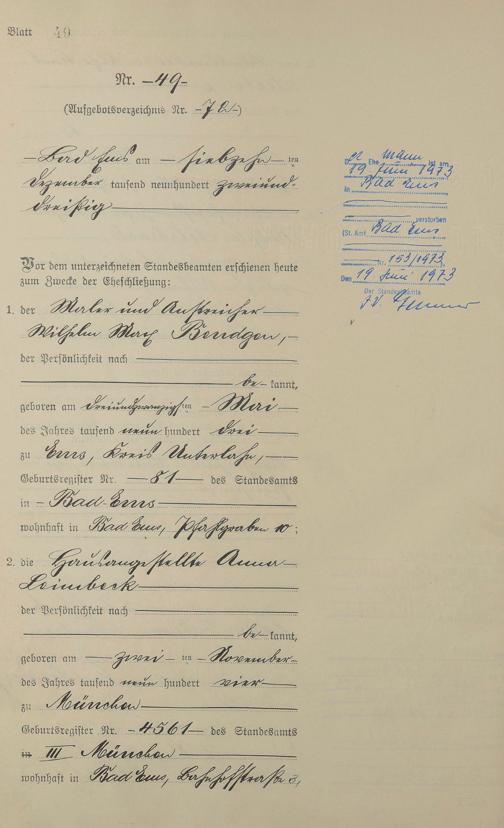 Blatt 49
Nr. -49-
(Aufgebotsverzeichnis Nr. -72-)
-Bad Ems am - siebzehn - ten
Dezember tausend neunhundert zweiund-
dreißig
Vor dem unterzeichneten Standesbeamten erschienen heute
zum Zwecke der Eheschließung:
1. der Maler und Anstreicher
Wilhelm Max Bendgen,
der Persönlichkeit nach
be- kannt,
geboren am dreiundzwanzigsten - Mai
des Jahres tausend neun hundert drei
zu Ems, Kreis Unterlahn,
Geburtsregister Nr. -81- des Standesamts
in - Bad-Ems
wohnhaft in Bad Ems, Pfahlgraben 10;
2. die Hausangestellte Anna
Leimbeck
der Persönlichkeit nach
be- kannt,
geboren am - zwei - ten - November-
des Jahres tausend neun hundert vier
zu München
Geburtsregister Nr. -4561- des Standesamts
in III München
wohnhaft in Bad Ems, Bahnhofstraße 3,
Ehe mann ist am
19 Juni 1973
in Bad Ems
verstorben
(St. Amt Bad Ems
Nr. 153/1973
Den 19. Juni 1973
Der Standesbeamte